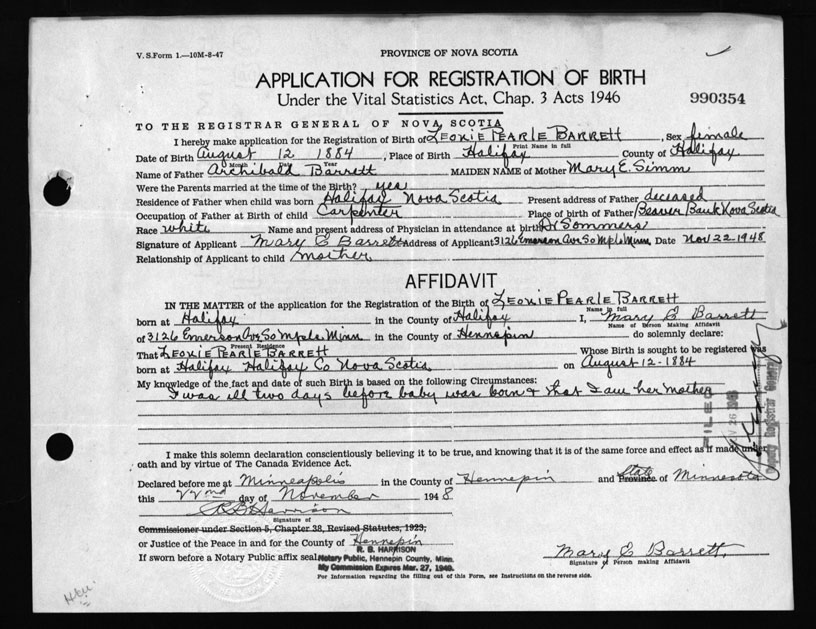 V. S. Form 1.—10M-8-47
PROVINCE OF NOVA SCOTIA
APPLICATION FOR REGISTRATION OF BIRTH
Under the Vital Statistics Act, Chap. 3 Acts 1946
990354
TO THE REGISTRAR GENERAL OF NOVA SCOTIA
I hereby make application for the Registration of Birth of LEONIE PEARLE BARRETT, Sex female
Print Name in full
Date of Birth August 12 1884, Place of Birth Halifax County of Halifax
Month Day Year
Name of Father Archibald Barrett MAIDEN NAME of Mother Mary E. Simm
Were the Parents married at the time of the Birth? yes
Residence of Father when child was born Halifax Nova Scotia Present address of Father deceased
Occupation of Father at Birth of child Carpenter Place of birth of Father Beaver Bank Nova Scotia
Race white Name and present address of Physician in attendance at birth Dr Sommers
Signature of Applicant Mary E Barrett Address of Applicant 3126 Emerson Ave So Mpls Minn, Date Nov 22-1948
Relationship of Applicant to child mother
AFFIDAVIT
IN THE MATTER of the application for the Registration of the Birth of LEONIE PEARLE BARRETT
Name in full
born at Halifax in the County of Halifax I, Mary E Barrett
Name of Person Making Affidavit
of 3126 Emerson Ave So Mpls Minn in the County of Hennepin do solemnly declare:
Present Residence
That LEONIE PEARLE BARRETT Whose Birth is sought to be registered was
born at Halifax Halifax Co Nova Scotia on August 12-1884
My knowledge of the fact and date of such Birth is based on the following Circumstances:
I was ill two days before baby was born & that I am her Mother
FILED
County Registrar
I make this solemn declaration conscientiously believing it to be true, and knowing that it is of the same force and effect as if made under
oath and by virtue of The Canada Evidence Act.
Declared before me at Minneapolis in the County of Hennepin and State Province of Minnesota
this 22nd day of November 1948
R B Harrison
Signature of
Commissioner under Section 5, Chapter 38, Revised Statutes, 1923,
or Justice of the Peace in and for the County of Hennepin
R. B. HARRISON
If sworn before a Notary Public affix seal. Notary Public, Hennepin County, Minn.
My Commission Expires Mar. 27, 1949.
Mary E Barrett
Signature of Person making Affidavit
For Information regarding the filling out of this Form, see Instructions on the reverse side.